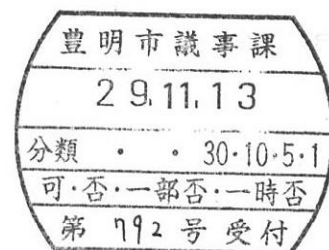 豊明市議事課
29.11.13
分類 ・ ・ 30・10・5・1
可・否・一部否・一時否
第 792 号 受付